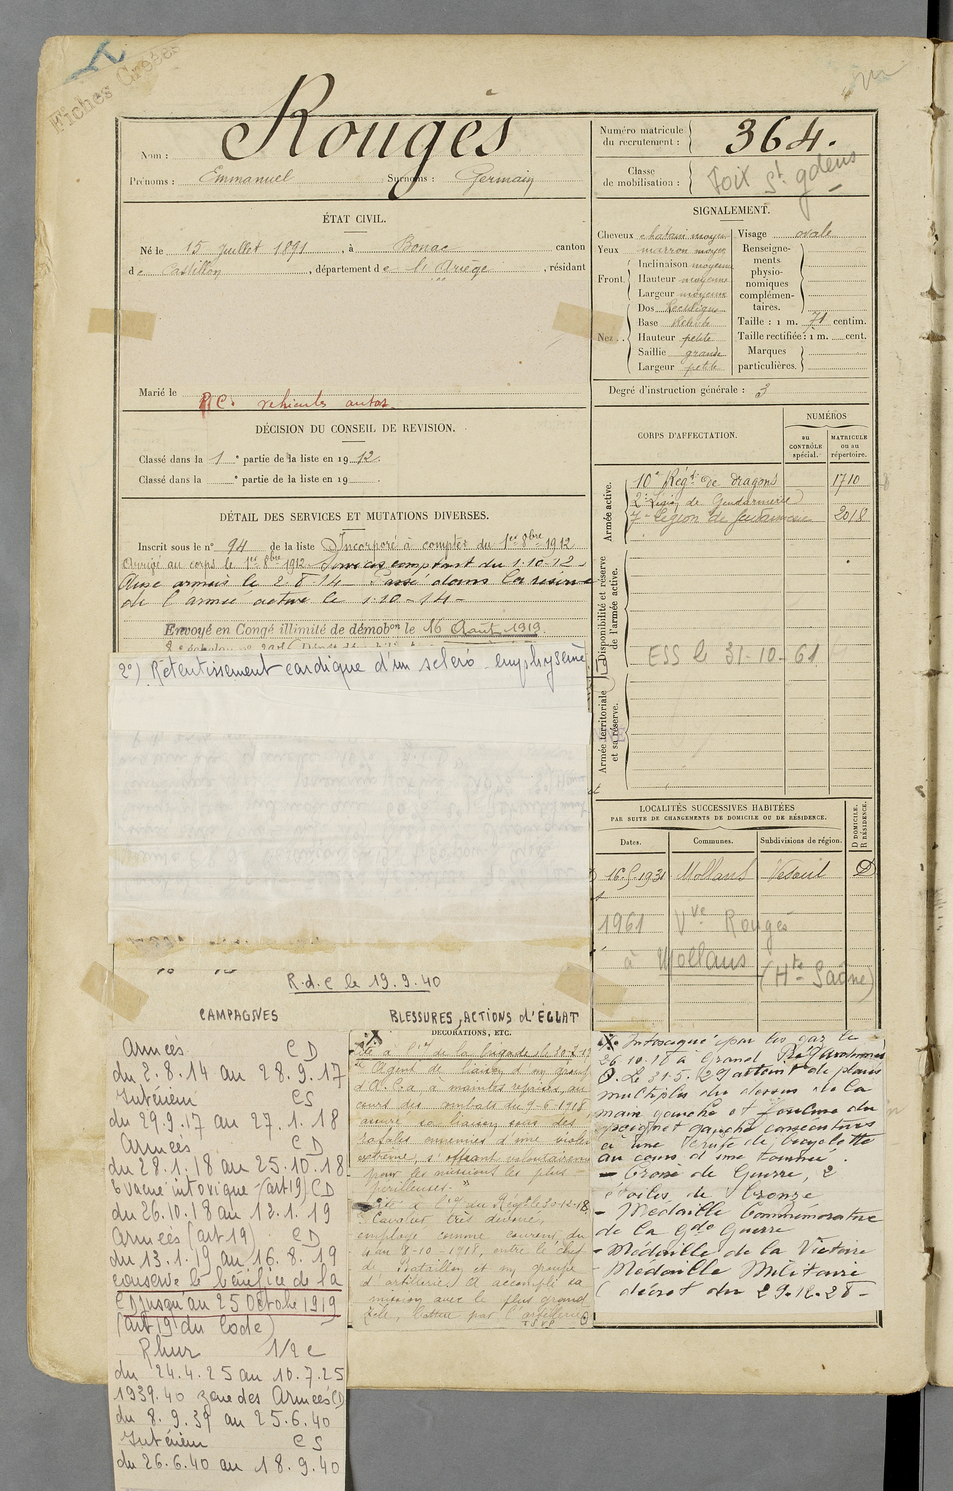 Fiches Croses
Nom : Rougés
Prénoms : Emmanuel Surnoms : Germain
ÉTAT CIVIL.
Né le 15 Juillet 1891, à Bonac canton
de Castillon, département de l'Ariège, résidant
Marié le
vehicules autos.
DÉCISION DU CONSEIL DE REVISION.
Classé dans la 1e partie de la liste en 1912.
Classé dans la e partie de la liste en 19
DÉTAIL DES SERVICES ET MUTATIONS DIVERSES.
Inscrit sous le n° 94 de la liste Incorporé à compter du 1er 8bre 1912
Arrivé au corps le 1er 8bre 1912. Services comptant du 1.10.12.
Aux armées le 2.8.14 Passé dans la réserve
de l'armée active le 1.10-14-
Envoyé en Congé illimité de démobon le 16 Août 1919
2°). Retentissement cardique d'un scléro emphysème
R.d.c le 19.9.40
CAMPAGNES
Armées CD
du 2.8.14 au 28.9.17
Intérieur CS
du 29.9.17 au 27.1.18
Armées CD
du 28.1.18 au 25.10.18
Evacué intoxiqué (art 19) CD
du 26.10.18 au 13.1.19
Armées (art 19) CD
du 13.1.19 au 16.8.19
conserve le bénéfice de la
CD jusqu'au 25 Octobre 1919
(art 19 du Code)
Rhur 1/2 c
du 24.4.25 au 10.7.25
1939.40 zone des Armées CD
du 8.9.39 au 25.6.40
Intérieur CS
du 26.6.40 au 18.9.40
BLESSURES, ACTIONS d'ÉCLAT
DÉCORATIONS, ETC.
Cité à l'O/ de la brigade le 30
Agent de liaison d'un groupe
d'A. C. a à maintes reprises, au
cours des combats du 9-6-1918
assuré sa liaison sous des
rafales ennemies d'une violence
extrême, s'offrant volontairement
pour les missions les plus
périlleuses. "
Cité à l'O du Régt le 30-12-18
Cavalier très dévoué,
employé comme coureur du
4 au 8-10-1918, entre le chef
de Bataillon et un groupe
d'artillerie. A accompli sa
mission avec le plus grand
zèle, battue par l'artillerie
T.S.V.P.
Numéro matricule du recrutement : 364.
Classe de mobilisation : Foix St gdens
SIGNALEMENT.
Cheveux chatain moyen
Yeux marron moyen
Front. Inclinaison moyenne
Hauteur moyenne
Largeur moyenne
Nez. Dos Rectiligne
Base Relevée
Hauteur petite
Saillie grande
Largeur petite
Visage ovale
Renseignements physionomiques complémentaires.
Taille : 1 m. 71 centim.
Taille rectifiée : 1 m. cent.
Marques particulières.
Degré d'instruction générale : 3
CORPS D'AFFECTATION.
NUMÉROS
au CONTRÔLE spécial.
MATRICULE ou au répertoire.
Armée active.
10e Régt de dragons 1710
2e Légion de Gendarmerie
7e Légion de Gendarmerie 2018
Disponibilité et réserve de l'armée active.
ESS le 31-10-61
Armée territoriale et sa réserve.
LOCALITÉS SUCCESSIVES HABITÉES
PAR SUITE DE CHANGEMENTS DE DOMICILE OU DE RÉSIDENCE.
Dates. Communes. Subdivisions de région. D DOMICILE. R RÉSIDENCE.
16.5.1931 Mollans Vesoul D
1961 Vve Rougés
à Mollans (Hte Saône)
Intoxiqué par les gaz le
26.10.18 à Grand
Le 31.5.29 atteint de plaies
multiples du dessus de la
main gauche et foulure du
poignet gauche consécutives
à une chute de bicyclette
au cours d'une tournée.
- Croix de Guerre, 2
étoiles de bronze
- Médaille Commémorative
de la Gde Guerre
- Médaille de la Victoire
- Médaille Militaire
(décret du 29.12.28-